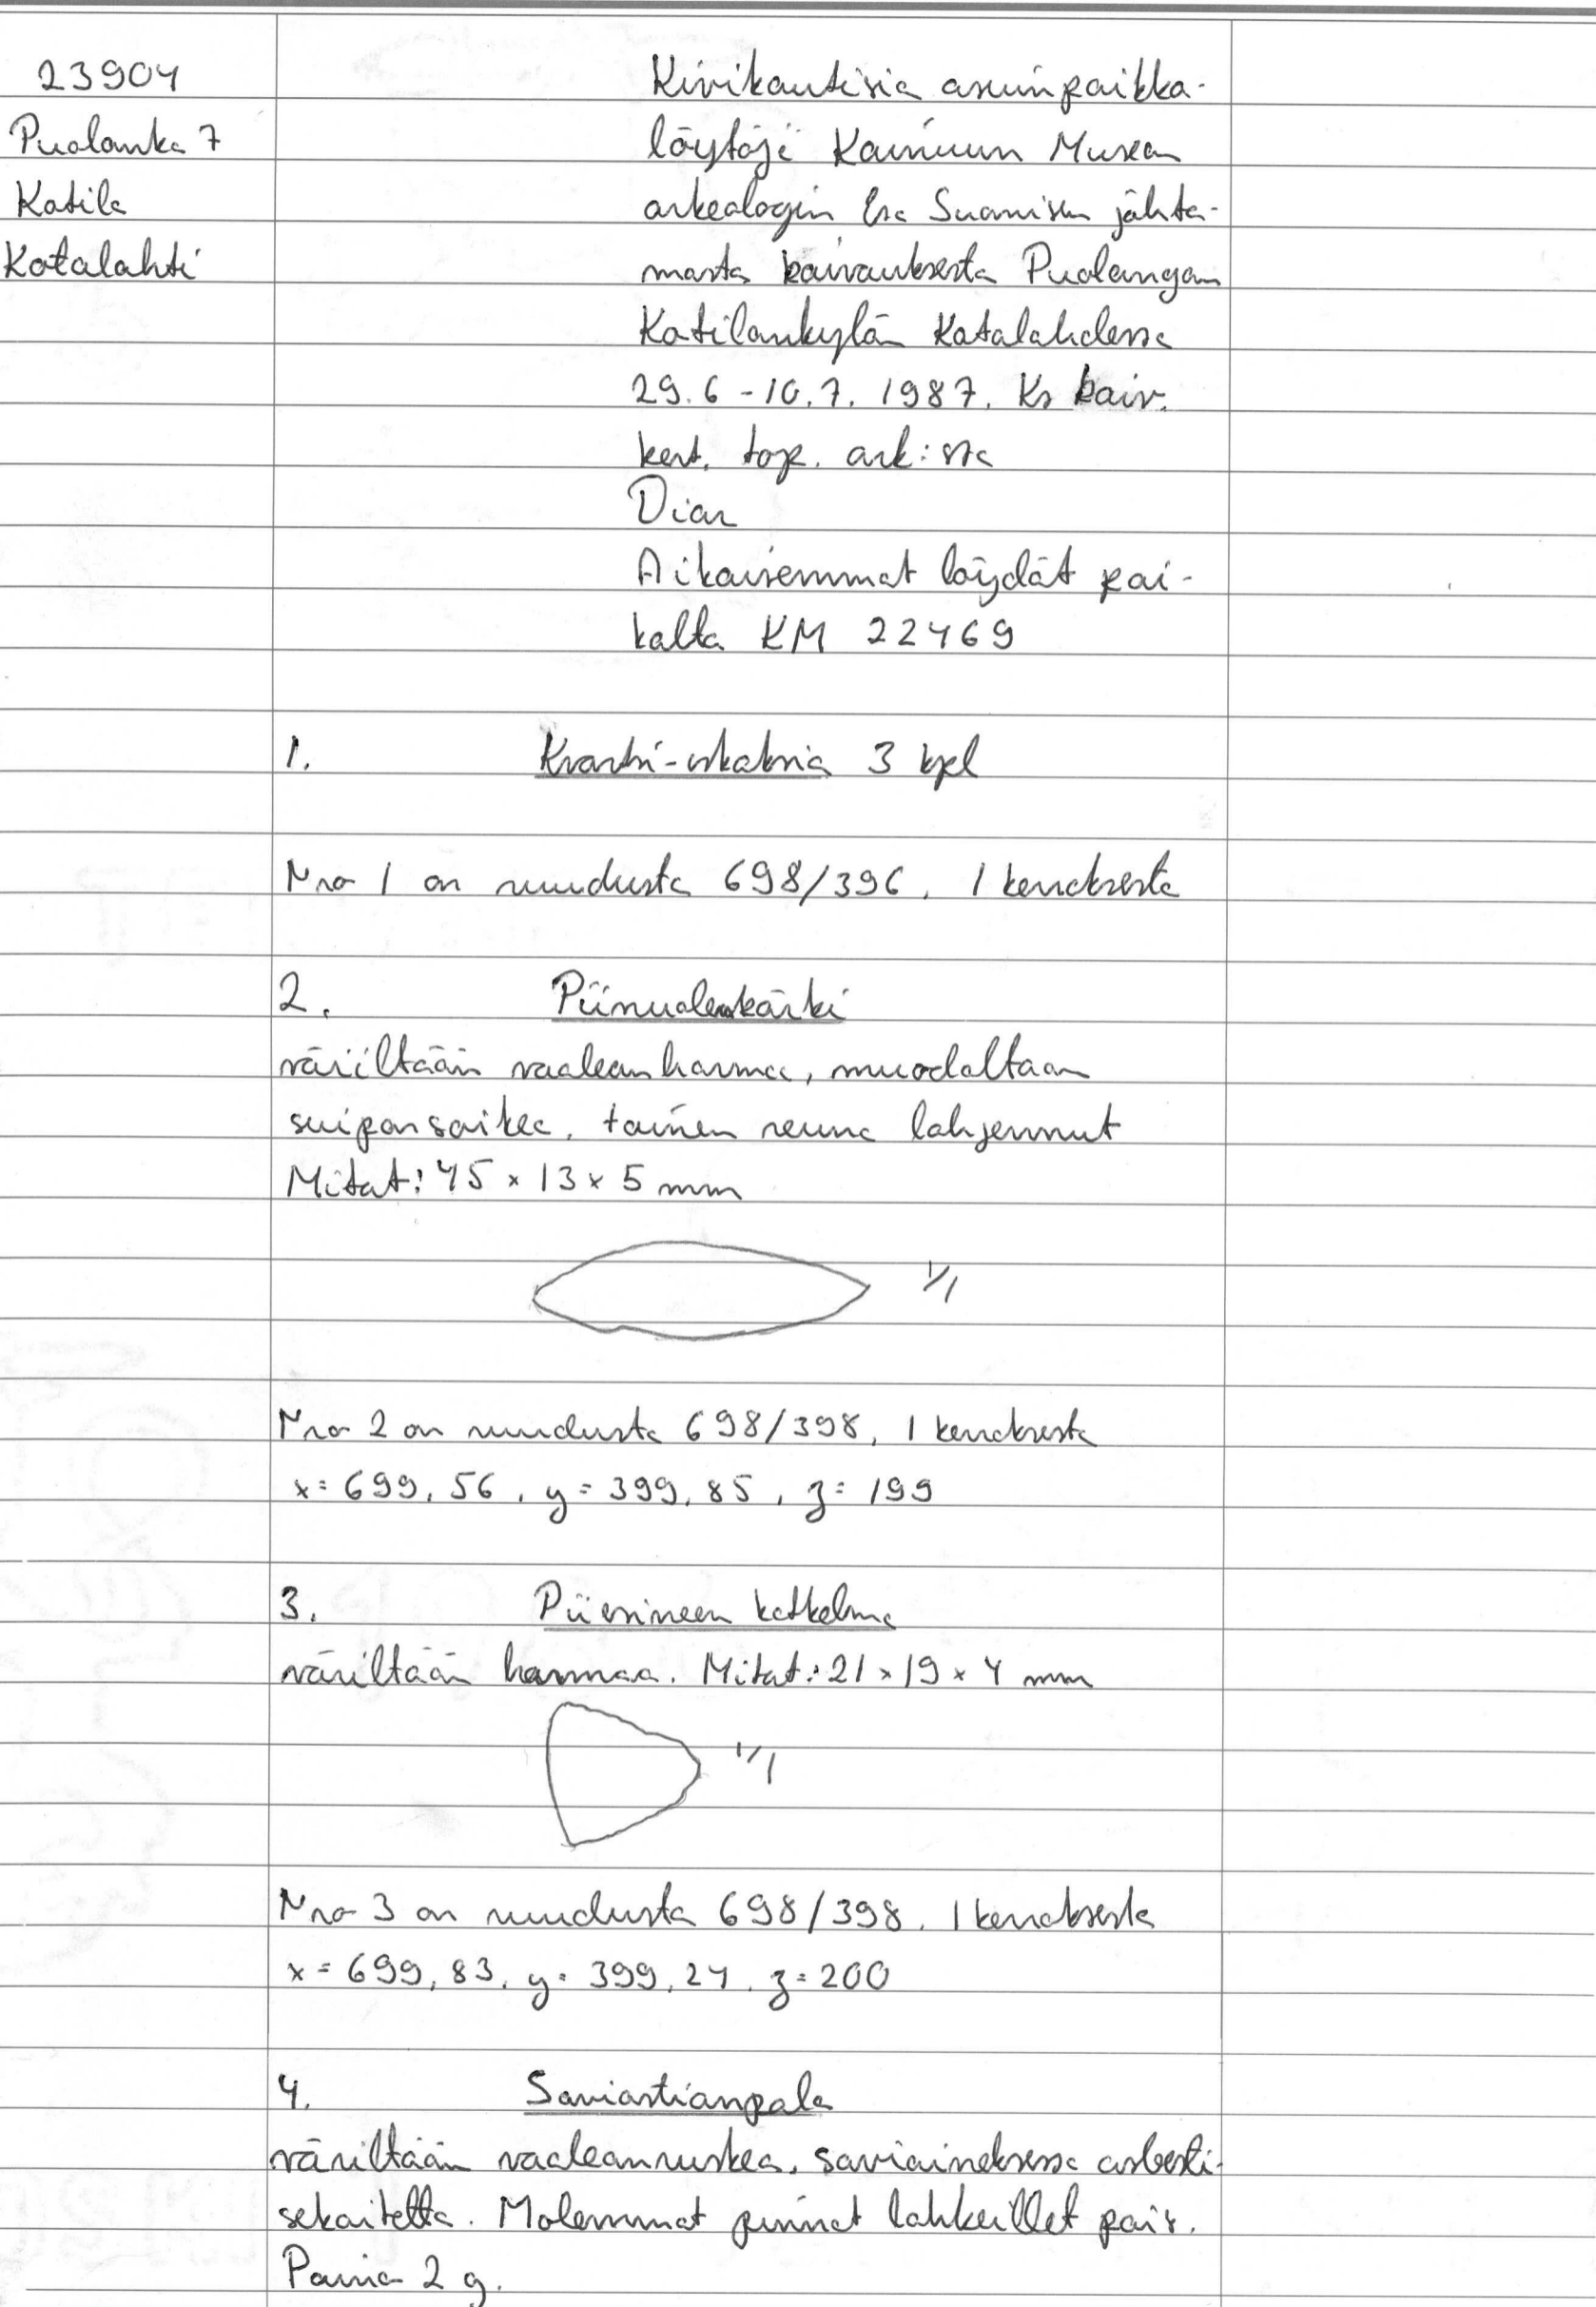 23904
Puolanka 7
Katila
Kotalahti
Kivikautisia asuinpaikka-
löytöjä Kainuun Museon
arkeologin Esa Suomisen johta-
masta kaivauksesta Puolangan
Katilankylän Kotalahdessa
29.6 - 10.7. 1987. Ks kaiv.
kert. top. ark:sta
Diar
Aikaisemmat löydöt pai-
kalta KM 22469
1. Kvartsi-iskoksia 3 kpl
Nro 1 on ruudusta 698/396, 1 kerroksesta
2. Piinuolenkärki
väriltään vaaleanharmaa, muodoltaan
suiponsoikea, toinen reuna lohjennut
Mitat: 45 x 13 x 5 mm
1/1
Nro 2 on ruudusta 698/398, 1 kerroksesta
x = 699,56, y = 399,85, z = 199
3. Piiesineen katkelma
väriltään harmaa. Mitat: 21 x 19 x 4 mm
1/1
Nro 3 on ruudusta 698/398, 1 kerroksesta
x = 699,83, y = 399,24, z = 200
4. Saviastianpala
väriltään vaaleanruskea, saviaineksessa asbesti-
sekoitetta. Molemmat pinnat lohkeillet pois.
Paino 2 g.